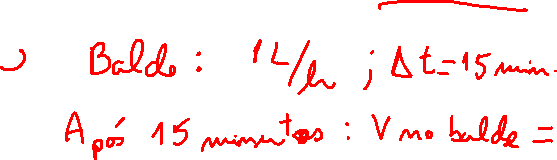 Balde: 1L/h ; Δt=15 min.
Após 15 minutos: V no balde =